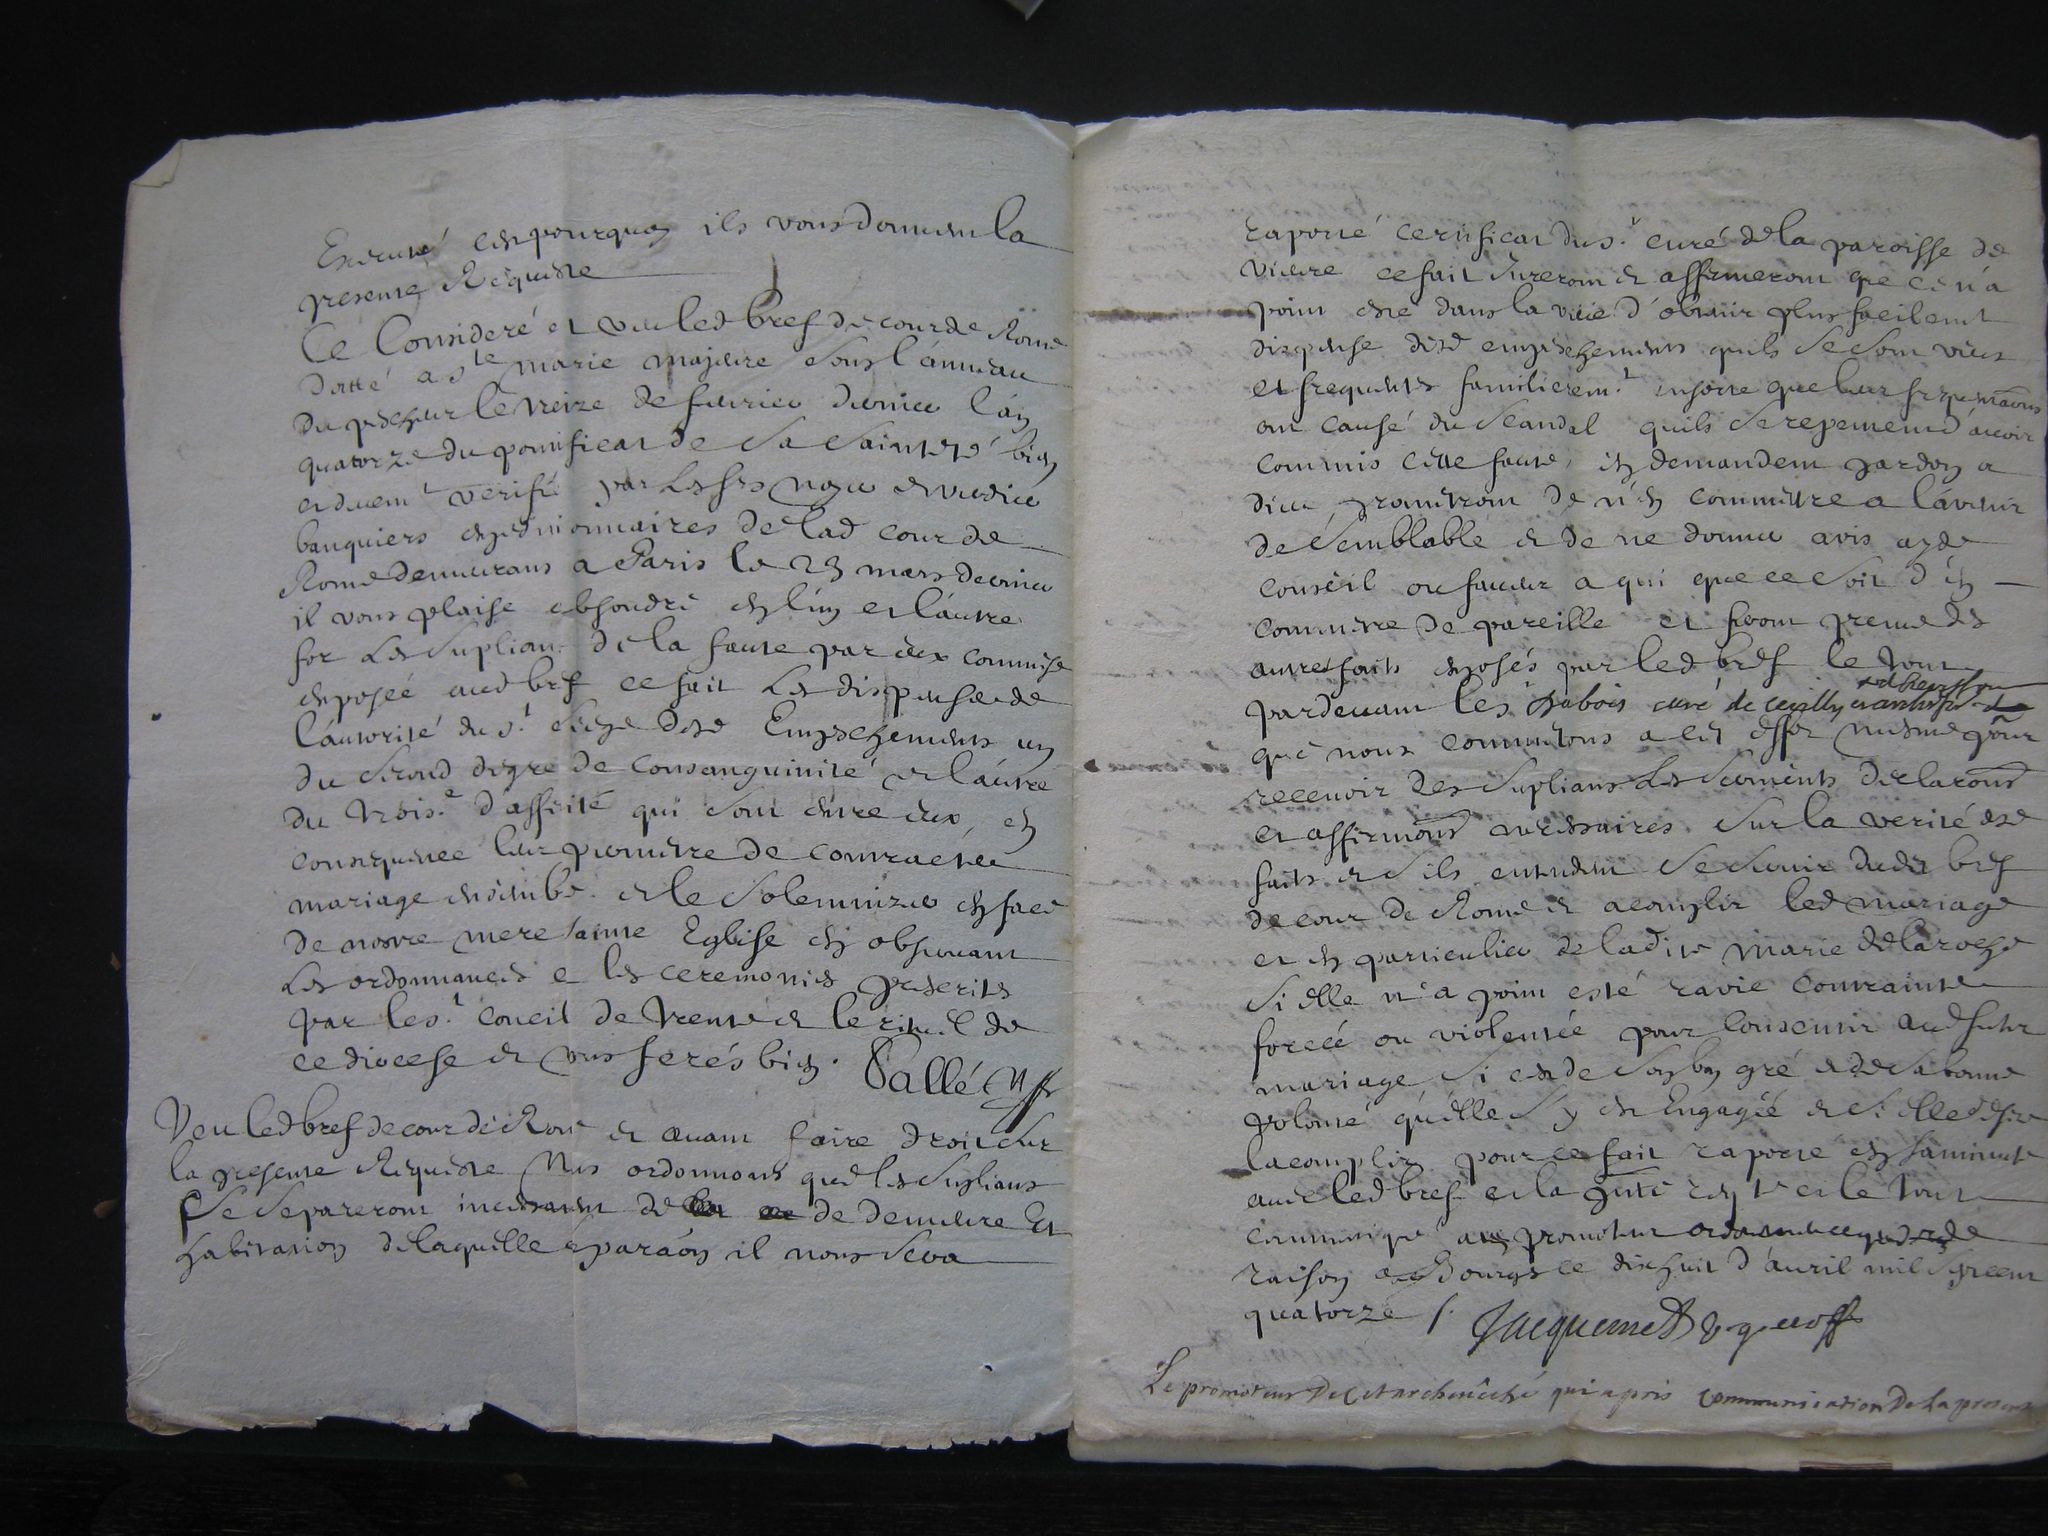 Executé c'est pourquoy ils vous donnent la
presente Requeste
Ce Consideré et veu led bref de cour de Rome
datté a Ste marie majeure sous l'anneau
du pecheur le treize de fevrier dernier l'an
quatorze du pontificat de Sa Sainteté bien
et duemt verifié par les srs et
banquiers expeditionnaires de lad cour de
Rome demeurans a Paris le 23 mars dernier
il vous plaise absoudre en l'un et l'autre
for les Suplians de la faute par eux commise
exposée aud bref ce fait les dispenser de
l'autorité du st siege desd Empechements un
du second degre de consanguinité et l'autre
du troise d'affinité qui sont entre eux en
consequence leur permettre de contracter
mariage ensemble et le solemnizer en face
de nostre mere sainte Eglise en observant
les ordonnances e les ceremonies prescrits
par le st concil de trente et le rituel de
ce diocese et vous ferés bien. Pallé
Veu led bref de cour de Rome et avant faire droit sur
la presente Requeste Nous ordonnons que les Suplians
se separeront incessament de de demeure Et
habitation de laquelle separaon il nous sera
raporté certificat du sr curé de la paroisse de
ce fait jureront et affirmeront que ce n'a
point esté dans la veüe d'obtenir plus facilemt
dispense desd empechements quils se sont veus
et frequentés familieremt ensorte que leur frequentaons
ont causé du scandal quils se repentent d'avoir
commis cette faute, en demandent pardon a
dieu promettront de n'en commettre a l'avenir
de semblable et de ne donner avis ayde
conseil ou faveur a qui que ce soit d'en
commettre de pareille et feront preuve des
autres faits exposés par led bref le tout
pardevant le sr Dubois curé de
que nous commettons a cet effet mesme pour
recevoir des Suplians les serments declaraons
et affirmaons necessaires sur la verité desd
faits et s'ils entendent se servir dudit bref
de cour de Rome et acomplir led mariage
et en particulier de ladite marie delaroche
si elle n'a point esté ravie contrainte
forcée ou violentée pour consentir aud futur
mariage si c'est de son bon gré et de sa bonne
volonté quelle s'y est Engagée et si elle desire
lacomplir pour ce fait raporté en sa minute
avec led bref et la presente reqte et le tout
communiqué au promoteur ordonné ce que de
raison a Bourges ce dixhuit d'avril mil sept cent
quatorze /. Jacquemet
Le promoteur De Cet archevêché qui a pris communication De La presente